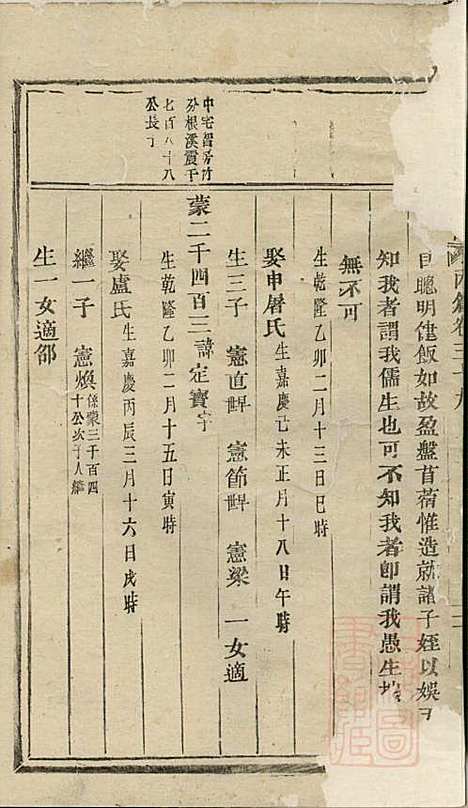 目聰明健飯如故盈盤苜蓿惟造就諸子姪以娛
知我者謂我儒生也可不知我者卽謂我愚生
無不可
生乾隆乙卯二月十三日巳時
娶申屠氏生嘉慶己未正月十八日午時
生三子 憲直 憲節 憲梁 一女適
中宅智房付
分根溪震千
七百八十八
公長子
蒙二千四百三諱定寶字
生乾隆乙卯二月十五日寅時
娶盧氏生嘉慶丙辰三月十六日戌時
繼一子 憲煥係蒙三千百四
十公次子入繼
生一女適邵